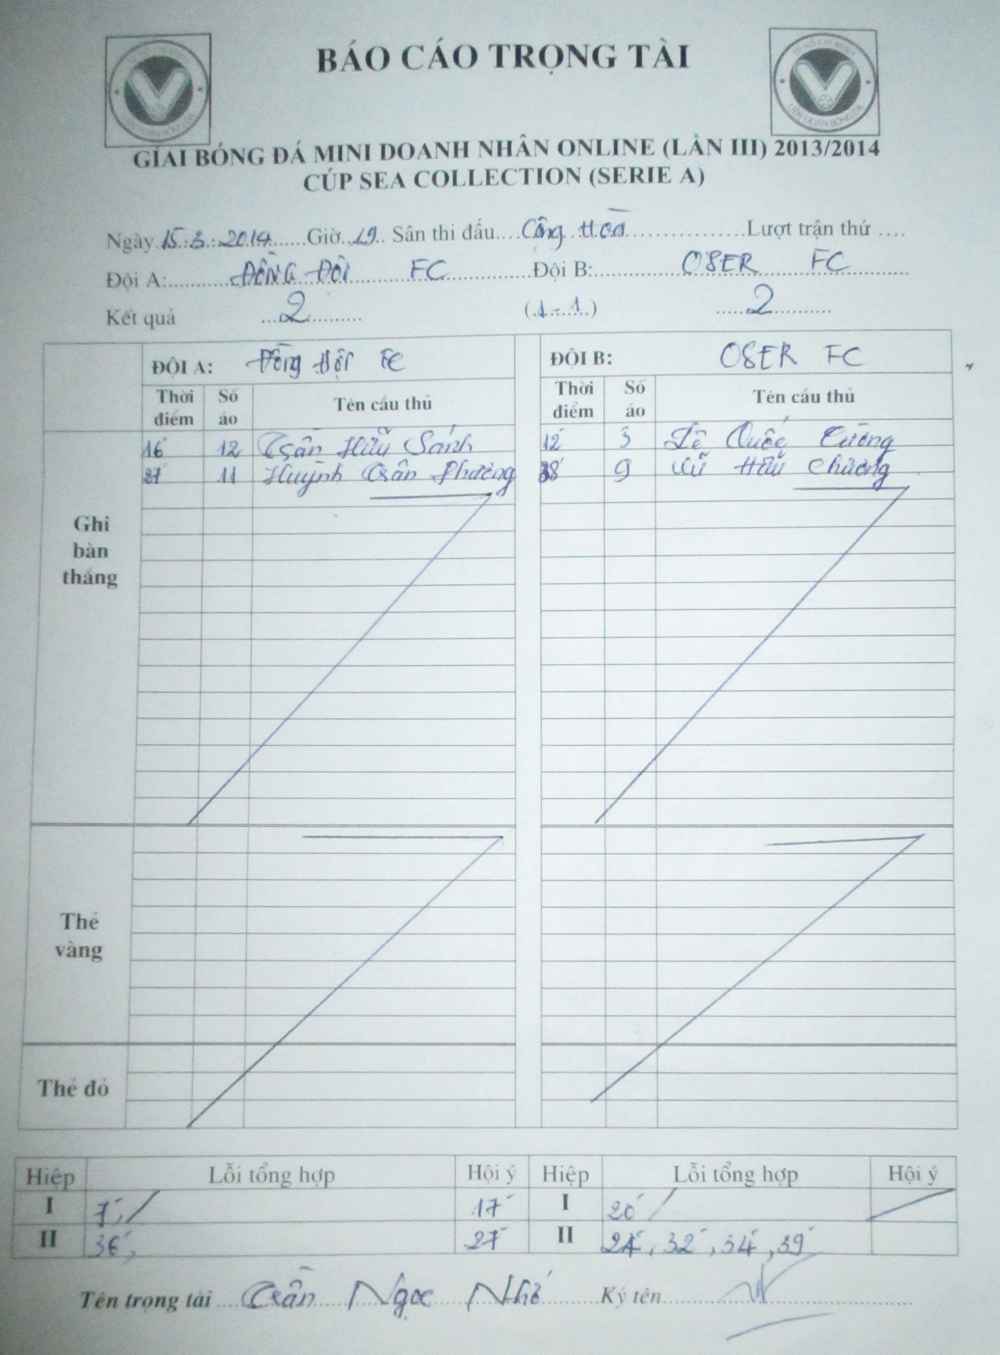 BÁO CÁO TRỌNG TÀI
GIẢI BÓNG ĐÁ MINI DOANH NHÂN ONLINE (LẦN III) 2013/2014
CÚP SEA COLLECTION (SERIE A)
Ngày 15.3.2014 Giờ 19 Sân thi đấu Cộng Hoà Lượt trận thứ ....
Đội A: ĐỒNG ĐỘI FC Đội B: O8ER FC
Kết quả 2 (1-1) 2
ĐỘI A: Đồng Đội FC ĐỘI B: O8ER FC
Thời điểm Số áo Tên cầu thủ Thời điểm Số áo Tên cầu thủ
16 12 Trần Hữu Sánh 12 3 Lê Quốc Cường
27 11 Huỳnh Trần Phương 38 9 Hữu Chương
Ghi bàn thắng
Thẻ vàng
Thẻ đỏ
Hiệp Lỗi tổng hợp Hội ý Hiệp Lỗi tổng hợp Hội ý
I 7, 17 I 20
II 36, 27 II 24, 32, 34, 39
Tên trọng tài Trần Ngọc Nhớ Ký tên